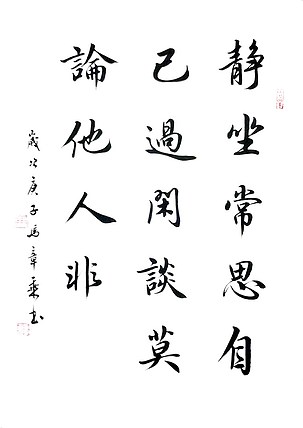 静坐常思自
己過閑談莫
論他人非
歲次庚子馬章乘书